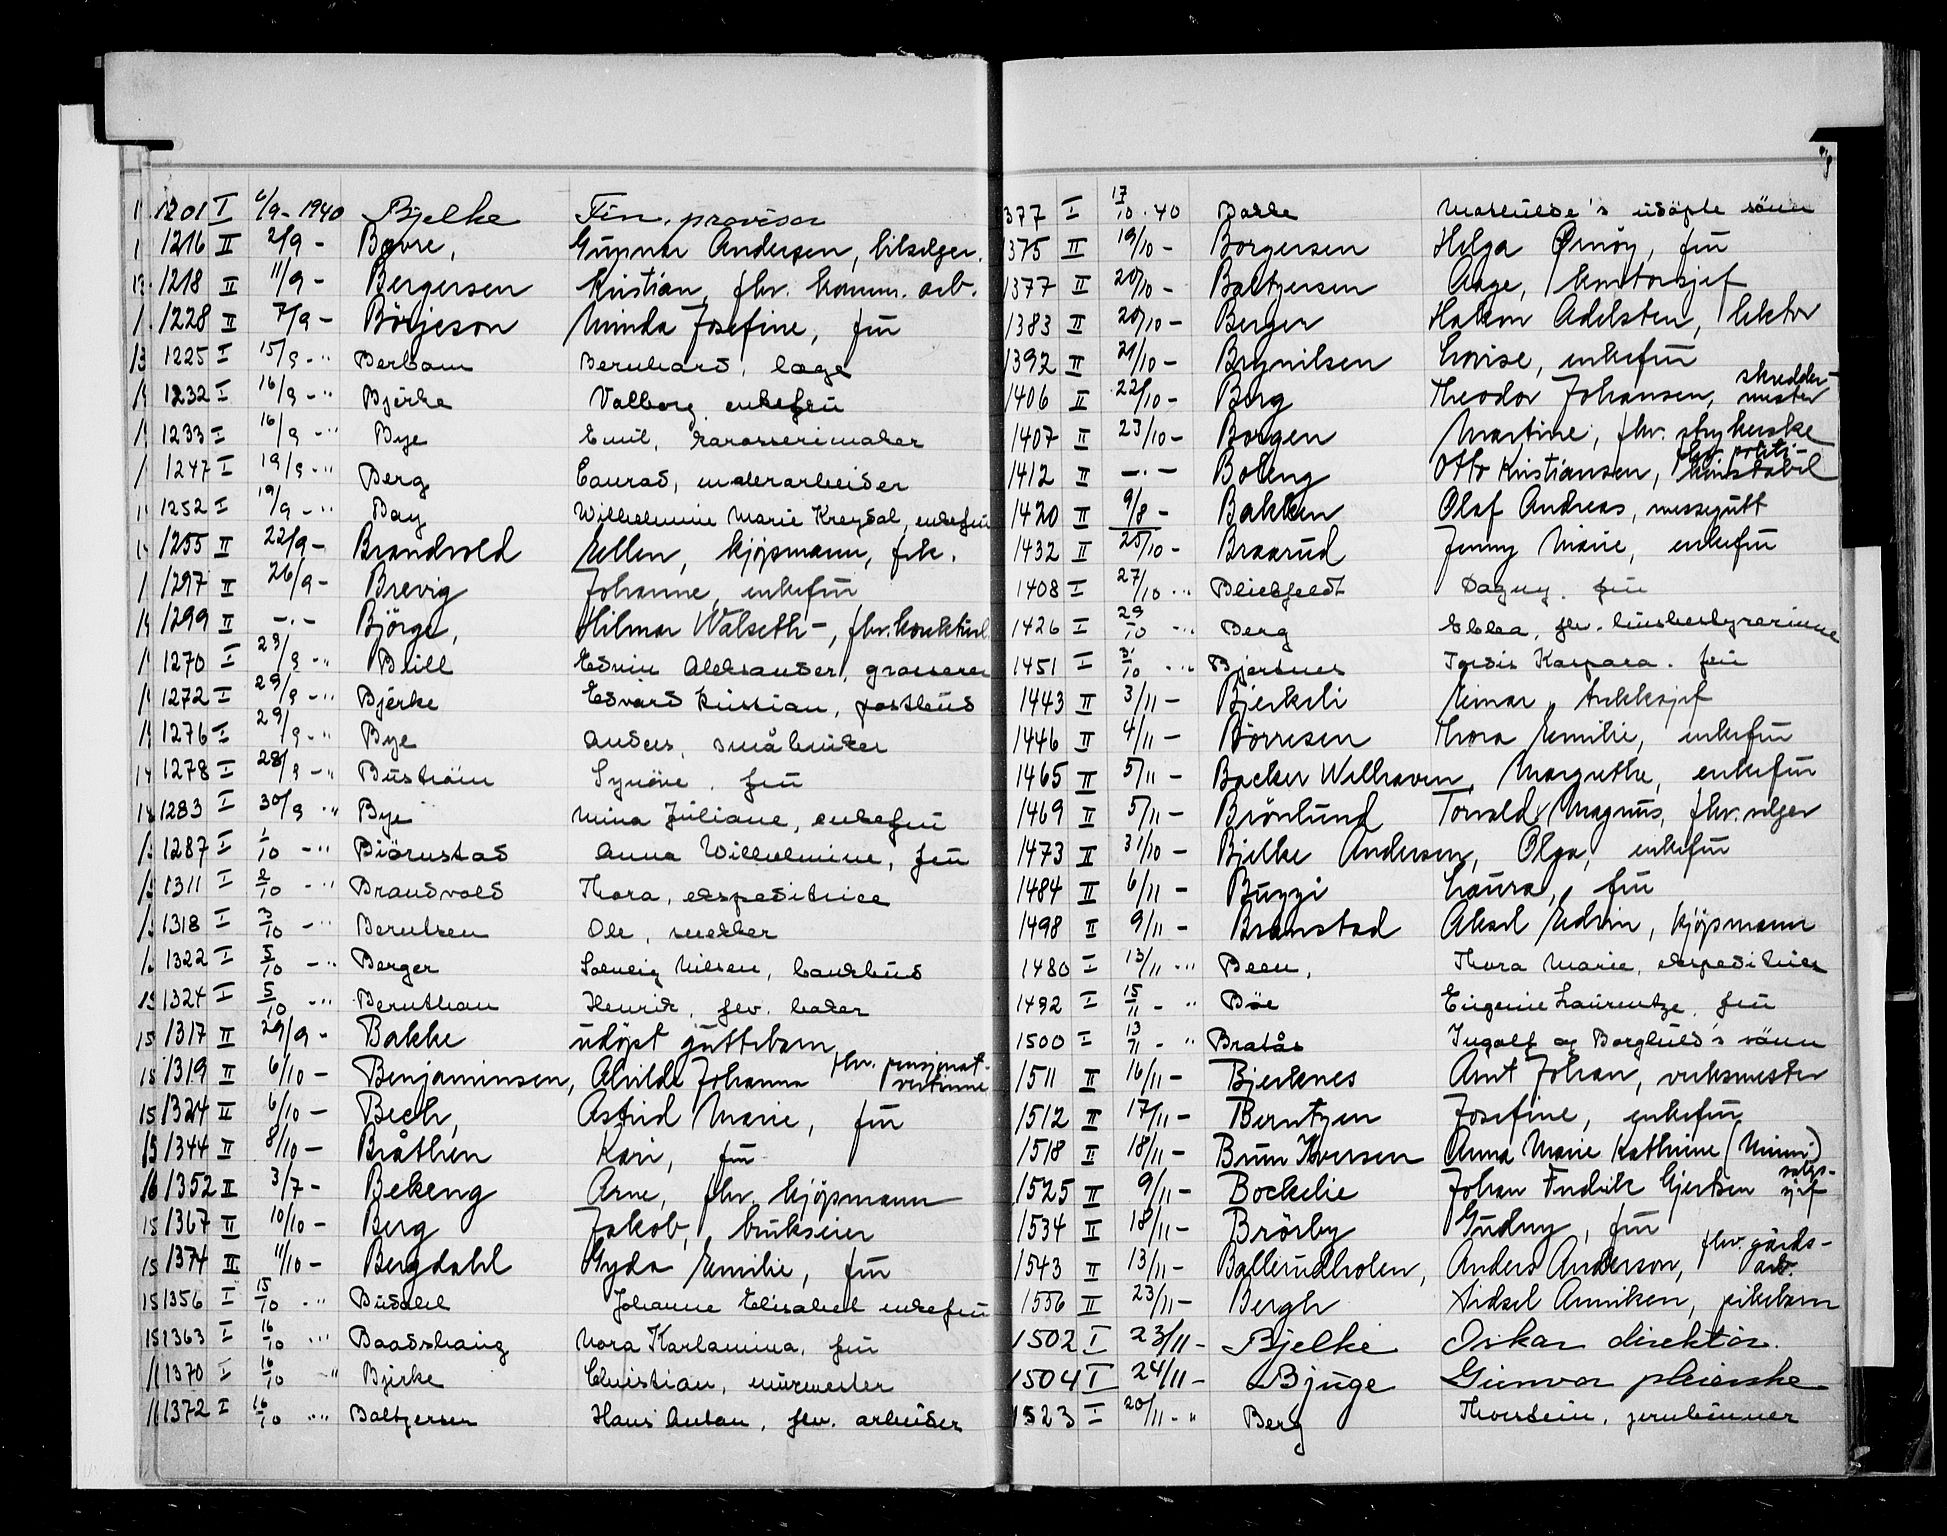 1201 I 6/9 - 1940 Bjelke Finn, provisor
1216 II 2/9 - Bovre, Gunnar Andersen, bilselger.
1218 II 11/9 - Bergersen Kristian, fhv. komm. arb.
1228 II 7/9 - Börjeson Minda Josefine, frü
1225 I 15/9 - " Bernhard, læge
1232 I 16/9 - " Bjerke Valborg, enkefrü
1233 I 16/9 - " Bye Emil, karosserimaker
1247 I 19/9 - " Berg Conrad, malerarbeider
1252 I 19/9 - " Bay Wilhelmine Marie Kreydal, enkefrü
1255 II 22/9 - Brandvold Ellen, kjøpmann, frk.
1297 II 26/9 - Brevig Johanne, enkefrü
1299 II - . - Björge, Hilmar Walseth -,
1270 I 28/9 - " Brill Edvin Aleksander, grosserer
1272 I 29/9 - " Bjerke Edvard Kristian, postbüd
1276 I 29/9 - " Bye Anders, småbruker
1278 I 28/9 - " Büström Synöve, frü
1283 I 30/9 - " Bye Mina Jüliane, enkefrü
1287 I 1/10 - " Björnstad Anna Wilhelmine, frü
1311 I 2/10 - " Brandvold Thora, ekspeditrice
1318 I 3/10 - " Berntsen Ole, snekker
1322 I 5/10 - " Berger Solveig Nilsen, bankbüd
1324 I 5/10 - " Bernthon Henrik, fhv. baker
1317 II 29/9 - Bakke udöpt güttebarn
1319 II 6/10 - Benjaminsen, Alvilde Johanna fhv. pensjonat-
vertinne
1324 II 6/10 - Bech, Astrid Marie, frü
1344 II 8/10 - Bråthen Kari, frü
1352 II 3/7 - Bekeng Arne, fhv. kjøpmann
1367 II 10/10 - Berg Jakob, brukseier
1374 II 11/10 - Bergdahl Gyda Emilie, frü
1356 I 15/10 - " Büdahl Johanne Elisabet enkefrü
1363 I 16/10 - " Baadshaug Nora Karlamina, frü
1370 I 16/10 - " Bjerke Christian, mürmester
1372 I 16/10 - " Baltzersen Hans Anton, fhv. arbeider
377 I 17/10 . 40 Bakke Mathilde's udöpte sönn
1375 II 19/10 - Borgersen Helga Ømöy, frü
1377 II 20/10 - Baltzersen Aage, kontorsjef
1383 II 20/10 - Berger Hakon Adelsten, lektor
1392 II 21/10 - Brynilsen Lovise, enkefrü
1406 II 22/10 - Berg Theodor Johansen, skredder-
mester
1407 II 23/10 - Borgen Martine, fhv. strykerske
1412 II - . - Boleng Otto Kristiansen, fhv. politi-
konstabel
1420 II 9/8 - Bakken Olaf Andreas, messegutt
1432 II 25/10 - Braarud Jenny Marie, enkefrü
1408 I 27/10 - " Blichfeldt Dagny, frü
1426 I 29/10 - " Berg Ebba, fhv. hüsbestyrerinne
1451 I 31/10 - " Bjertnes Tordis Kaspara, frü
1443 II 3/11 - Bjerkeli Einar, trikksjef
1446 II 4/11 - Børresen Thora Emilie, enkefrü
1465 II 5/11 - Backer Welhaven, Margrethe, enkefrü
1469 II 5/11 - Brönlund Torvald Magnüs, fhv. selger
1473 II 31/10 - Bjelke Andersen, Olga, enkefrü
1484 II 6/11 - Buzzi Laura, frü
1498 II 9/11 - Branstad Aksel Edvin, kjøpmann
1480 I 13/11 - " Been, Thora Marie, ekspeditrice
1492 I 15/11 - " Böe Eugenie Laurentze, frü
1500 I 13/11 - " Bratås Ingolf og Borghild's sönn
1511 II 16/11 - Bjerknes Arnt Johan, verksmester
1512 II 17/11 - Berntzen Josefine, enkefrü
1518 II 18/11 - Brun Iversen Anna Marie Kathrine (Mimi)
1525 II 9/11 - Bockelie Johan Fredrik Gjertsen salgs-
sjef
1534 II 18/11 - Brörby Gudny, frü
1543 II 13/11 - Ballerudholen, Anders Anderson, fhv. gårds-
arb.
1556 II 23/11 - Bergh Sidsel Anniken, pikebarn
1502 I 23/11 - Bjelke Oskar direktör.
1504 I 24/11 - Bjuge Gunvor pleierske
1523 I 20/11 - " Berg Thorstein, jernbinner